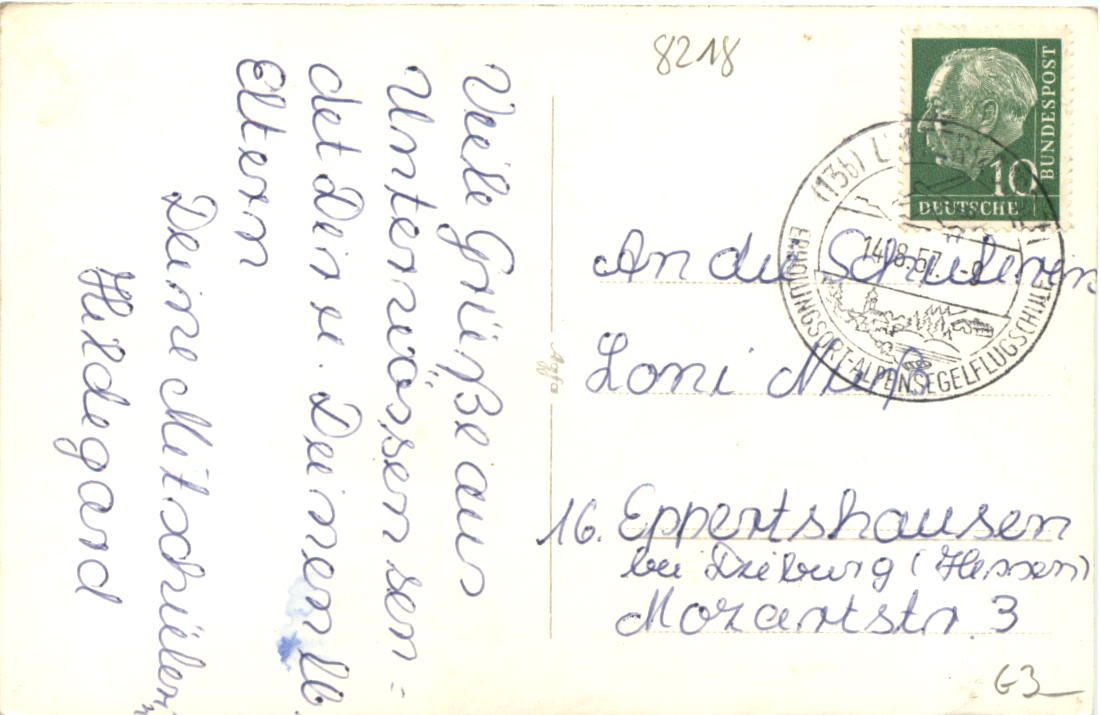 8218
BUNDESPOST
10
DEUTSCHE
(13b)
14.8.57.-9
ERHOLUNGSORT-ALPENSEGELFLUGSCHULE
Viele Grüße aus
Unterwössen sen=
det Dir u. Deinen lb.
Eltern
Deine Mitschüler
in
Hildegard
Agfa
An die Schülerin
Loni
16. Eppertshausen
bei Dieburg (Hessen)
Mozartstr. 3
G3